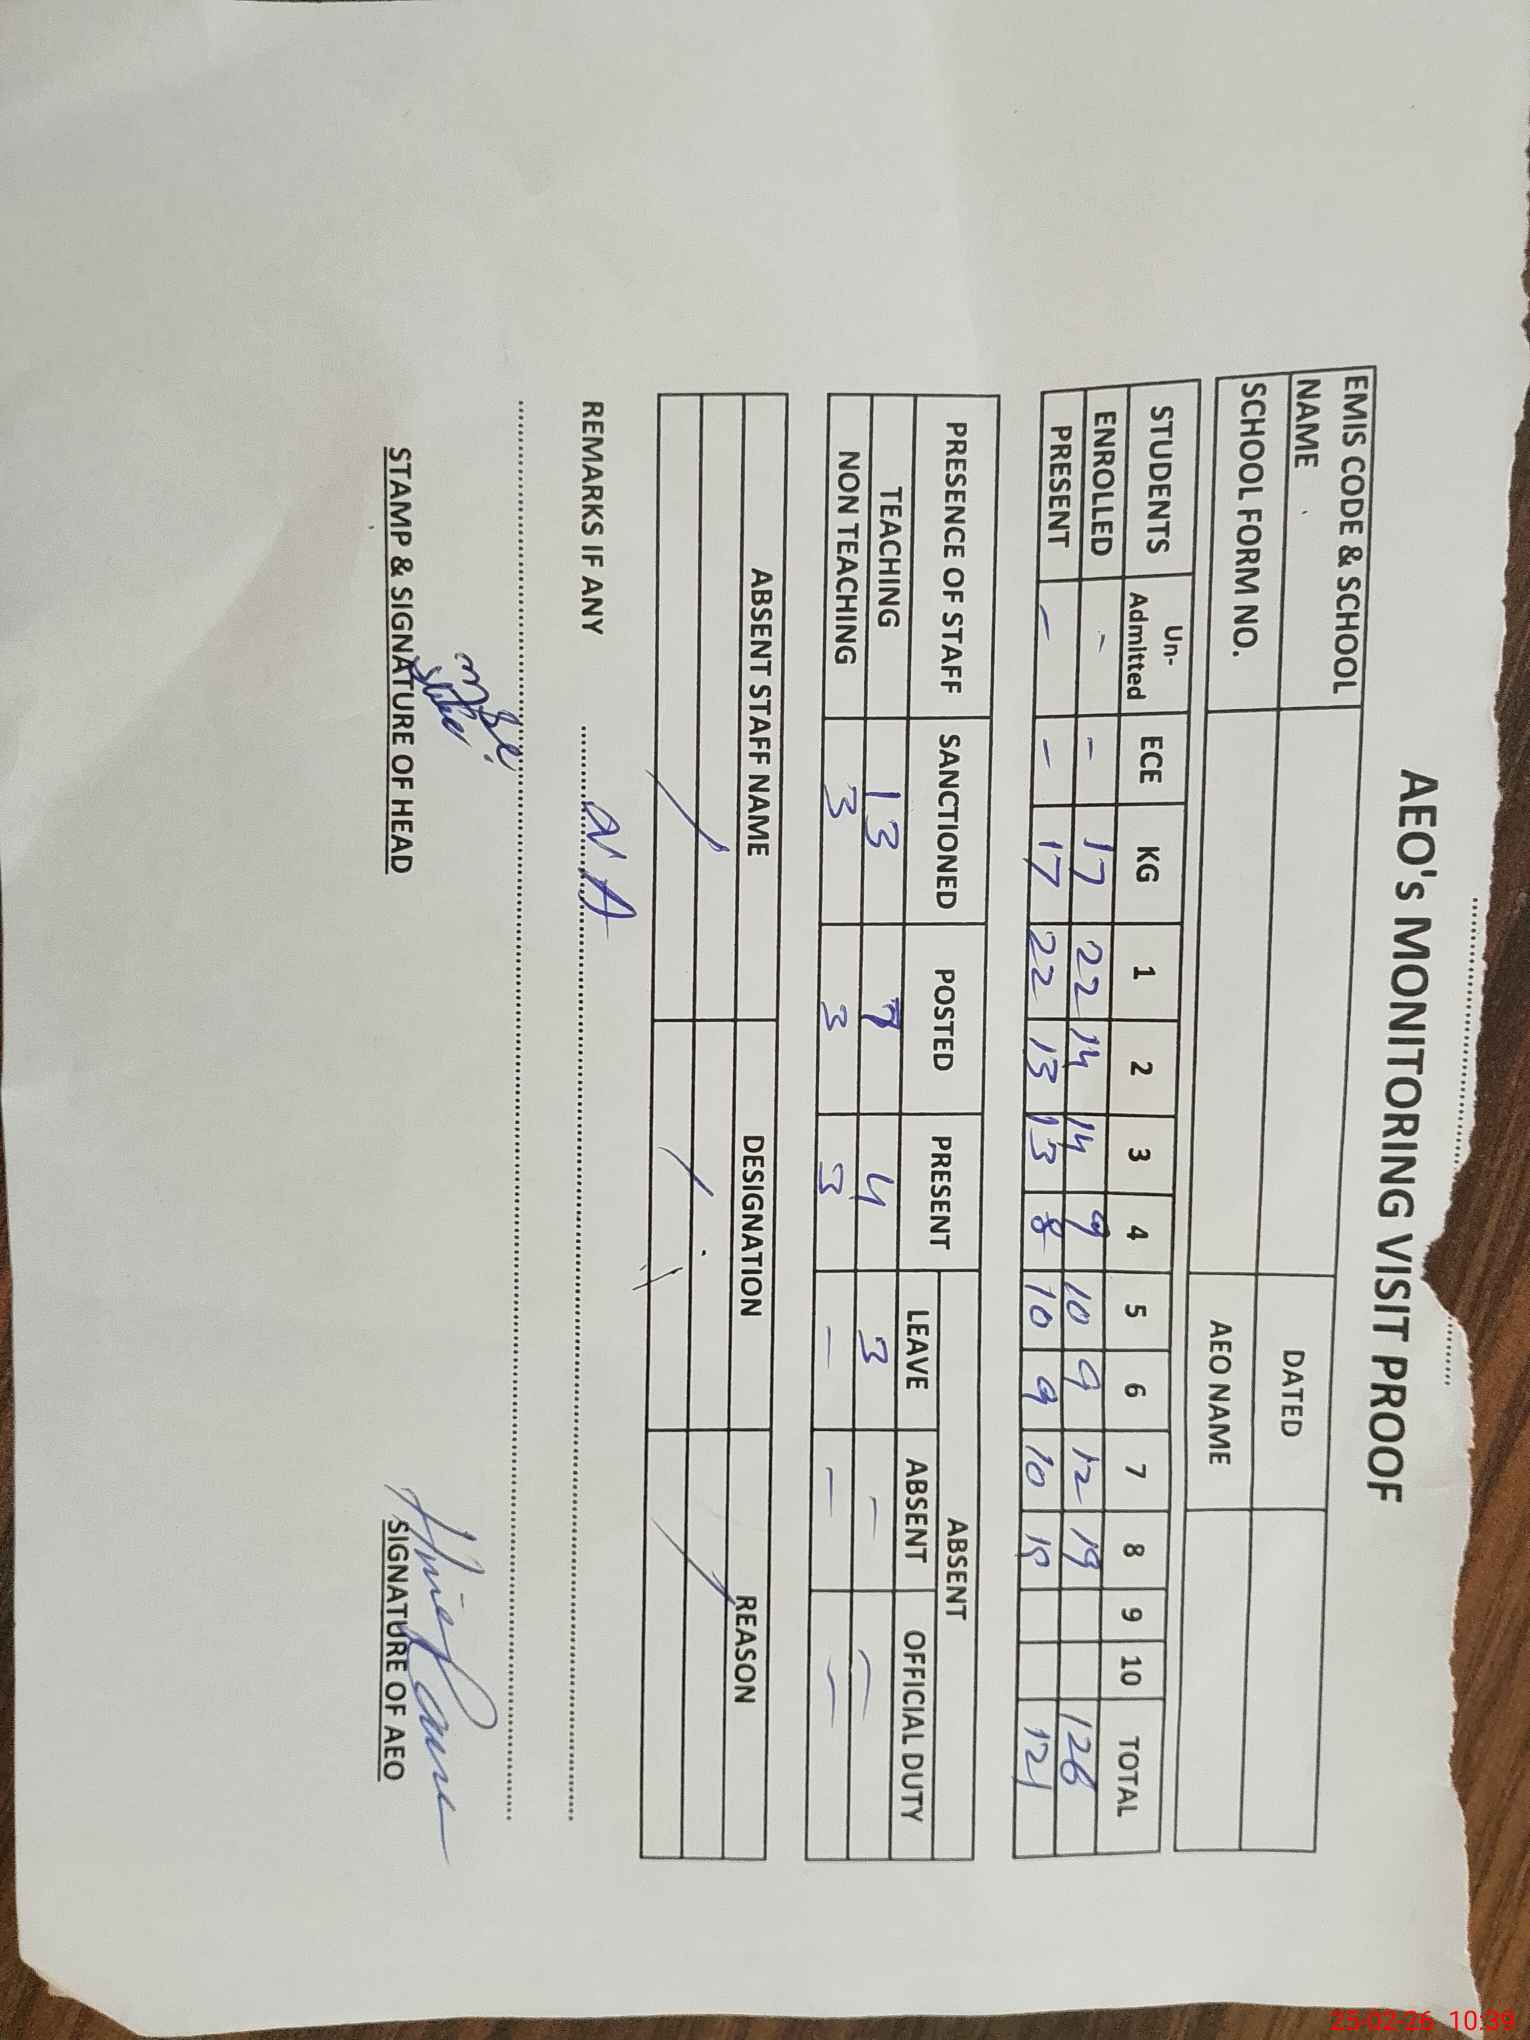 AEO's MONITORING VISIT PROOF
EMIS CODE & SCHOOL NAME DATED
SCHOOL FORM NO. AEO NAME
STUDENTS Un-Admitted ECE KG 1 2 3 4 5 6 7 8 9 10 TOTAL
ENROLLED - - 17 22 14 14 9 10 9 12 19 126
PRESENT - - 17 22 13 13 8 10 9 10 19 121
PRESENCE OF STAFF SANCTIONED POSTED PRESENT ABSENT
LEAVE ABSENT OFFICIAL DUTY
TEACHING 13 7 4 3 - -
NON TEACHING 3 3 3 - - -
ABSENT STAFF NAME DESIGNATION REASON
REMARKS IF ANY N A
STAMP & SIGNATURE OF HEAD SIGNATURE OF AEO
25-02-26 10:39